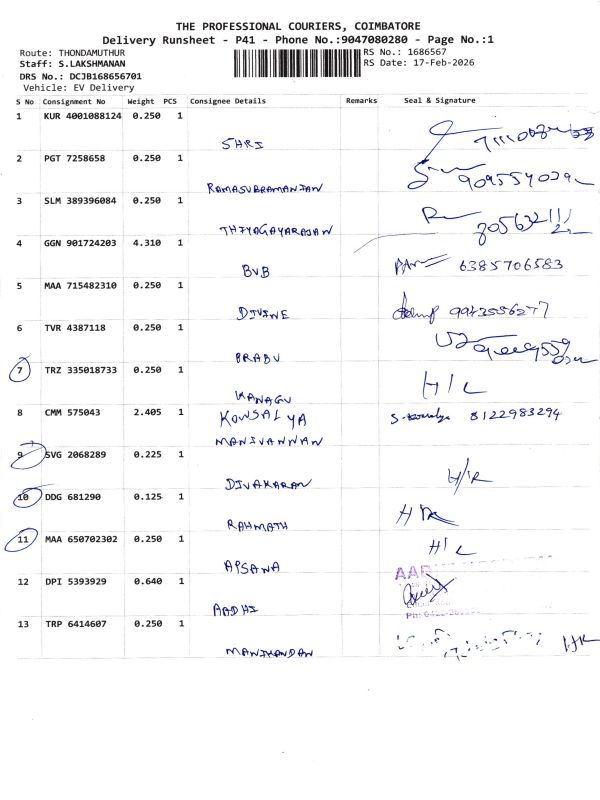 THE PROFESSIONAL COURIERS, COIMBATORE
Delivery Runsheet - P41 - Phone No.:9047080280 - Page No.:1
Route: THONDAMUTHUR RS No.: 1686567
Staff: S.LAKSHMANAN RS Date: 17-Feb-2026
DRS No.: DCJB168656701
Vehicle: EV Delivery
S No Consignment No Weight PCS Consignee Details Remarks Seal & Signature
1 KUR 4001088124 0.250 1
SHRI
2 PGT 7258658 0.250 1
RAMASUBRAMANIAN
3 SLM 389396084 0.250 1
THIYAGAYARAJAN
4 GGN 901724203 4.310 1
BVB 6385706583
5 MAA 715482310 0.250 1
DIVINE
6 TVR 4387118 0.250 1
BRABU
7 TRZ 335018733 0.250 1
KANAGU H/L
8 CMM 575043 2.405 1
KOWSALYA 8122983294
MANIVANNAN
9 SVG 2068289 0.225 1
DIVAKARAN H/R
10 DDG 681290 0.125 1
RAHMATH
11 MAA 650702302 0.250 1
APSANA H/L
12 DPI 5393929 0.640 1
AADHI
13 TRP 6414607 0.250 1
MANIKANDAN